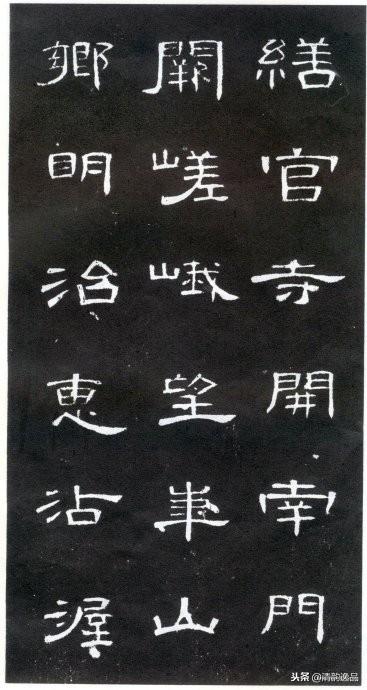 繕官寺開南門
闕嵯峨望華山
鄉明治恵沾渥
头条 @清韵逸品